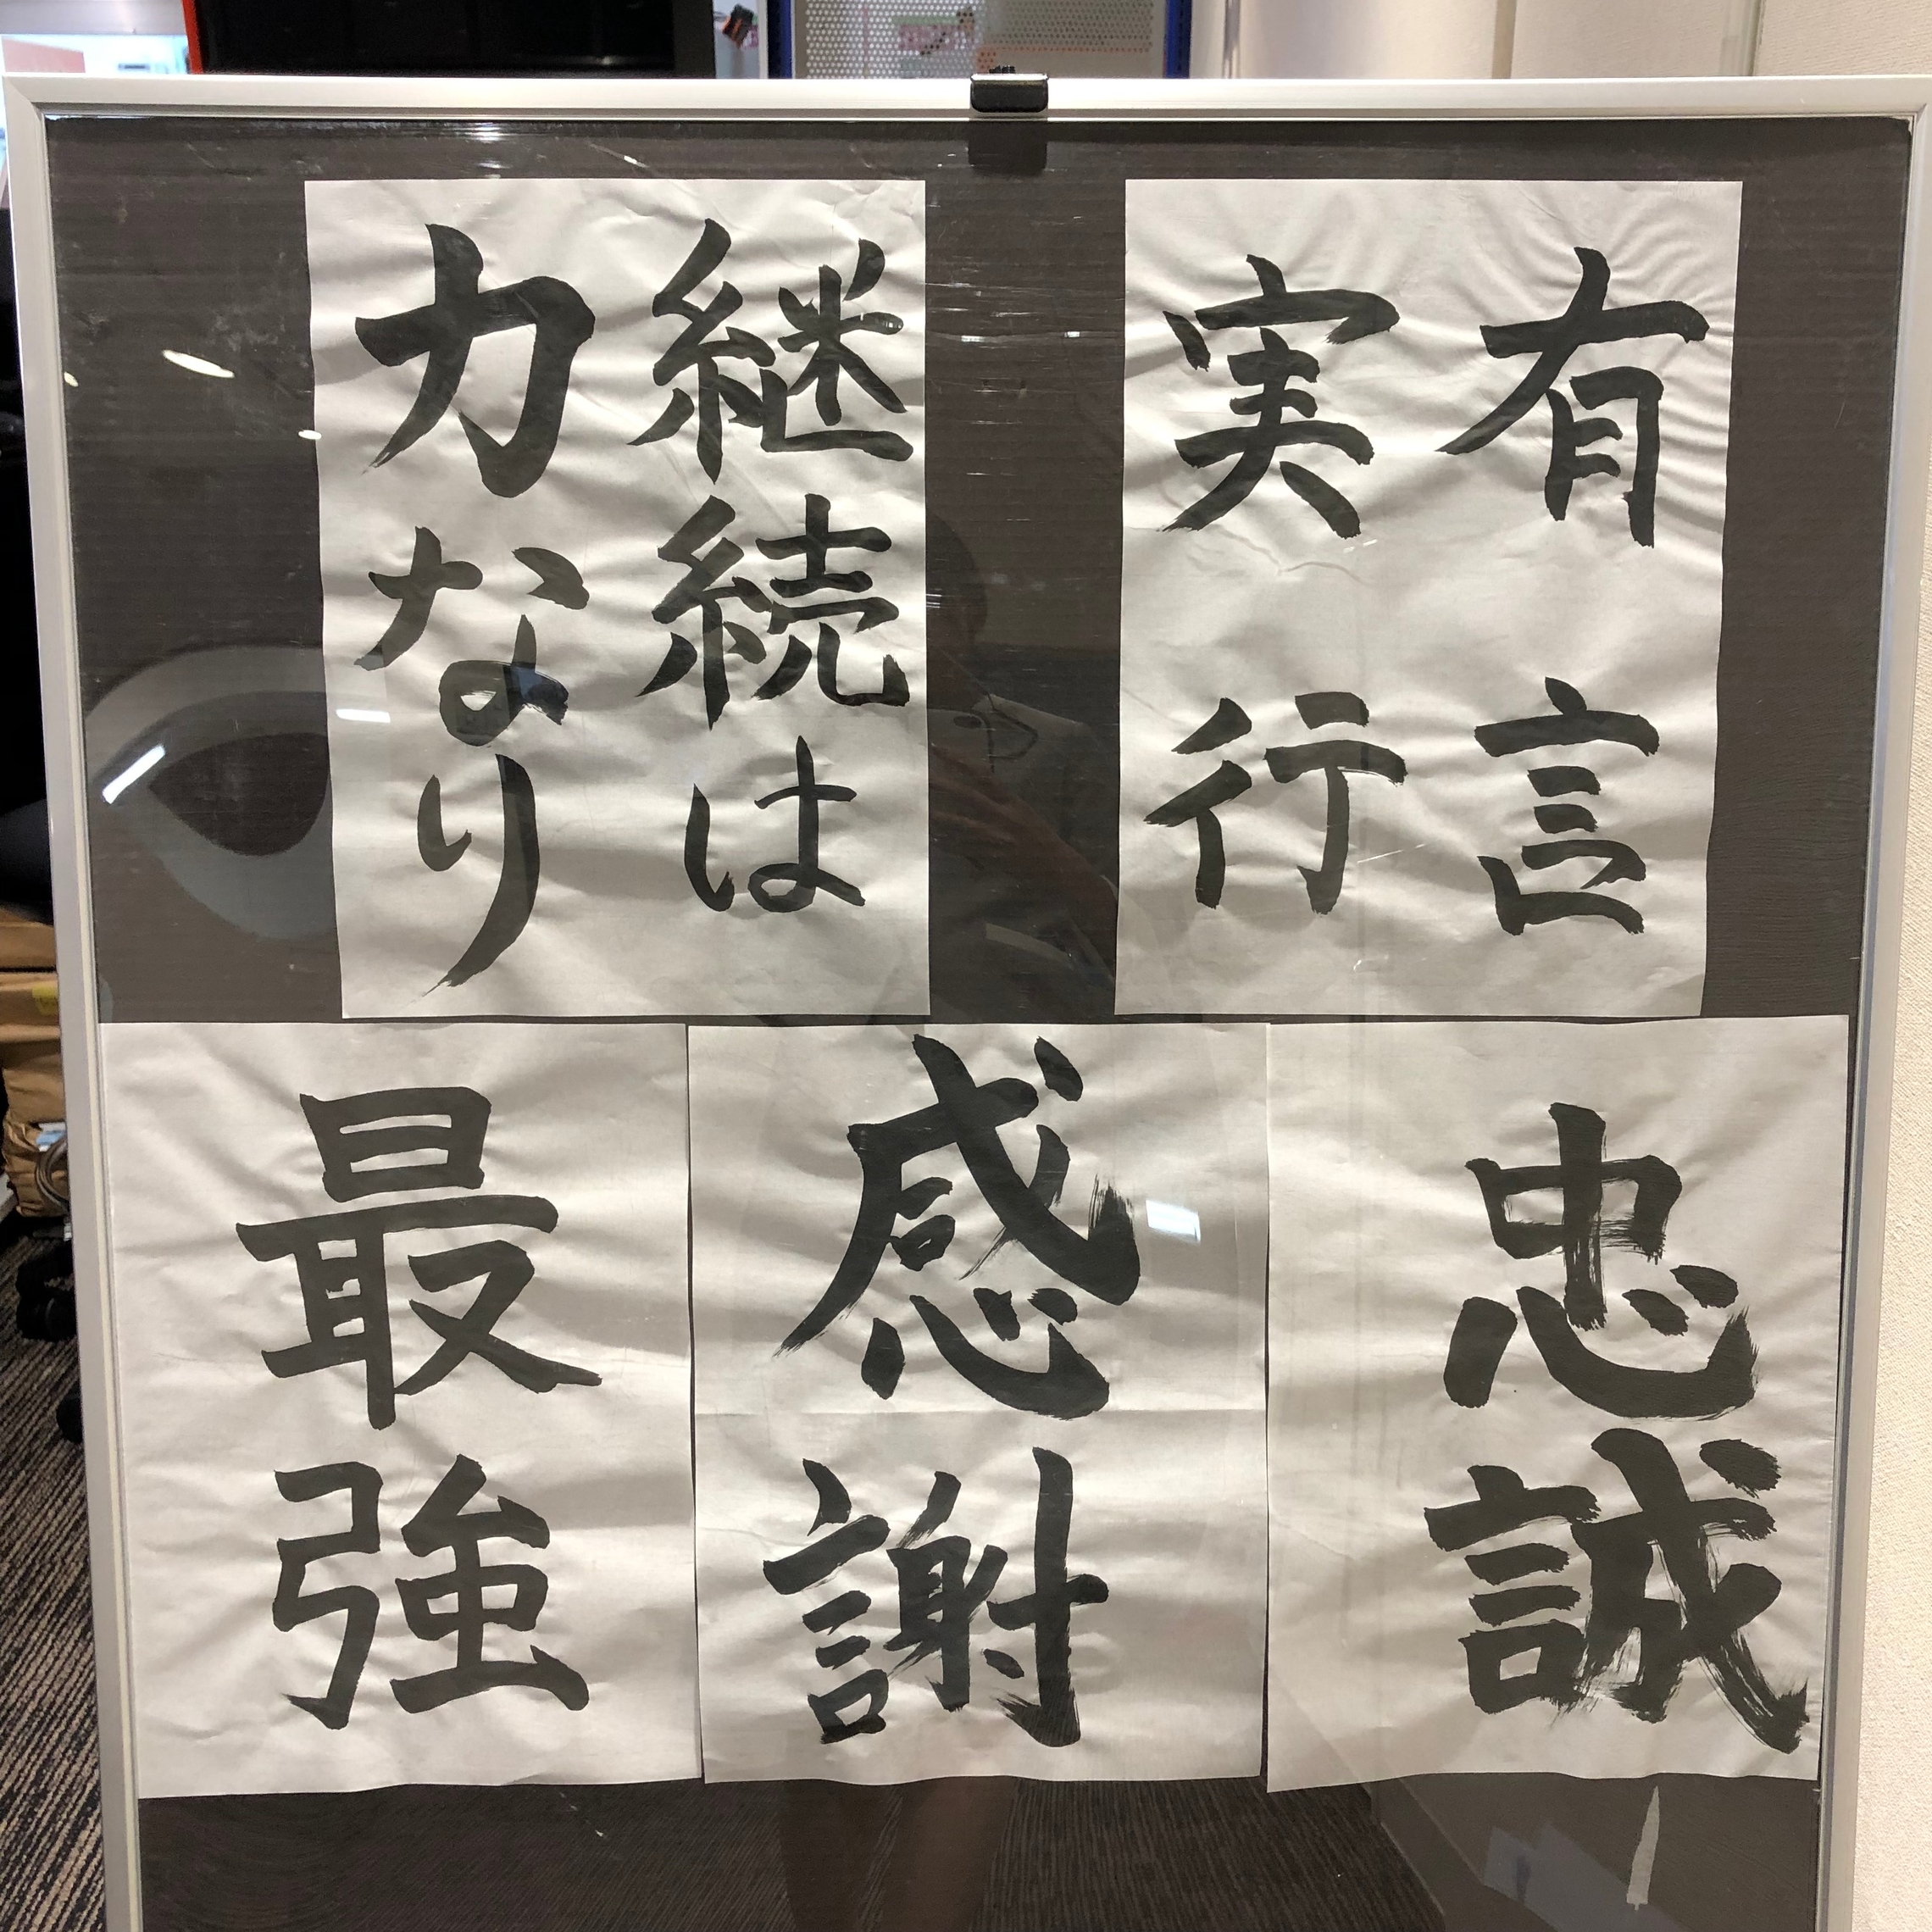 有言
実行
継続は
力なり
忠誠
感謝
最強